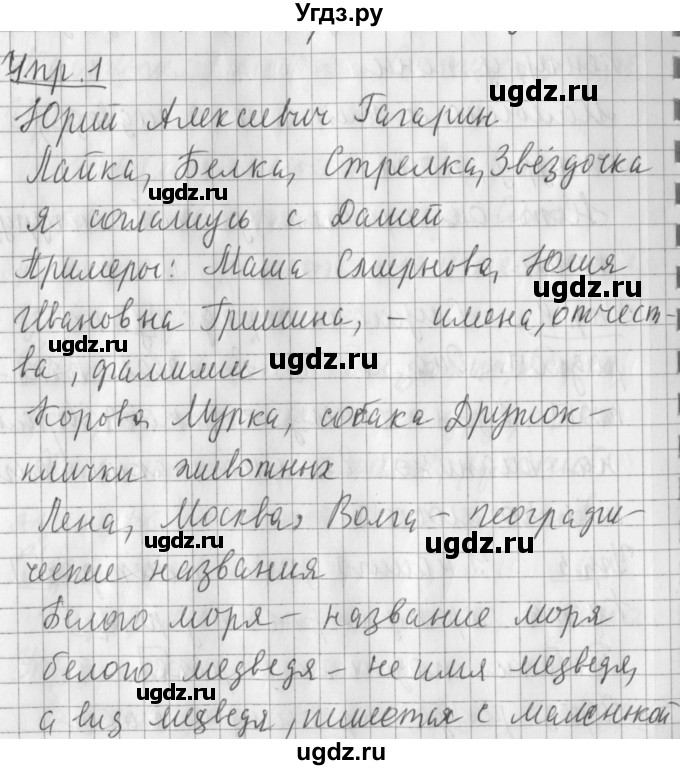 Угдз.ру
Упр. 1
Юрий Алексеевич Гагарин
ugdz.ru
Лайка, Белка, Стрелка, Звёздочка
ugdz.ru
Я соглашусь с Дашей
ugdz.ru
Примеры: Маша Смирнова, Юлия
ugdz.ru
Ивановна Гришина, - имена, отчест-
ugdz.ru
ва, фамилии
ugdz.ru
Корова Мурка, собака Дружок -
ugdz.ru
клички животных
Лена, Москва, Волга - географи-
ugdz.ru
ugdz.ru
ческие названия
Белого моря - название моря
ugdz.ru
белого медведя - не имя медведя,
ugdz.ru
а вид медведя, пишется с маленькой
ugdz.ru